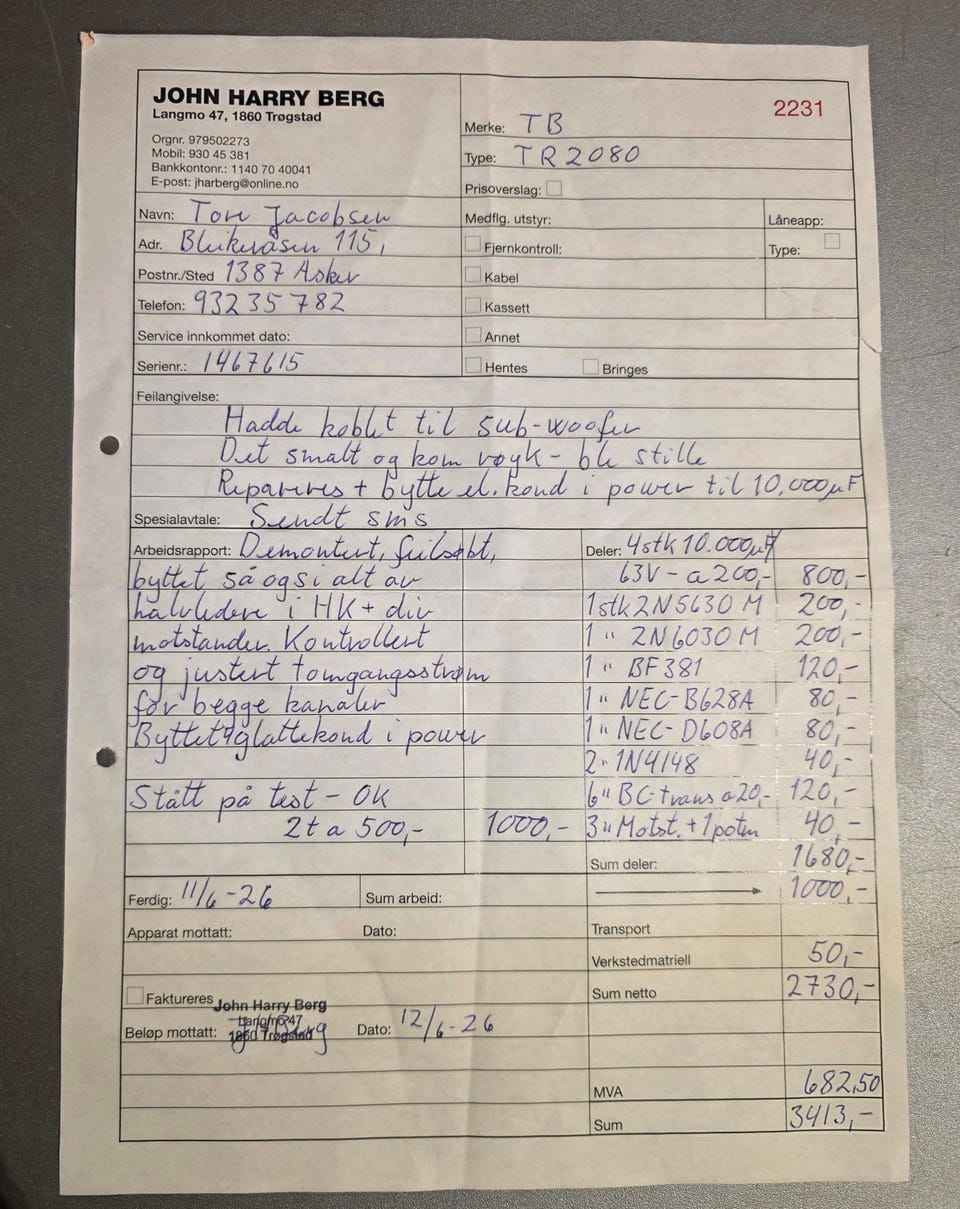 JOHN HARRY BERG
Langmo 47, 1860 Trøgstad
Orgnr. 979502273
Mobil: 930 45 381
Bankkontonr.: 1140 70 40041
E-post: jharberg@online.no
2231
Merke: TB
Type: TR2080
Prisoverslag:
Navn: Tore Jacobsen
Adr. Bleikeråsen 115,
Postnr./Sted 1387 Asker
Telefon: 932 35 782
Service innkommet dato:
Serienr.: 1467615
Medflg. utstyr:
Fjernkontroll:
Kabel
Kassett
Annet
Hentes Bringes
Låneapp:
Type:
Feilangivelse:
Hadde koblet til sub-woofer
Det smalt og kom røyk - ble stille
Repareres + bytte el. kond i power til 10,000µF
Spesialavtale: Sendt sms
Arbeidsrapport: Demontert, feilsøkt,
byttet så og si alt av
halvledere i HK + div
motstander. Kontrollert
og justert tomgangsstrøm
for begge kanaler
Byttet 4 glattekond i power
Stått på test - OK
2t a 500,- 1000,-
Deler: 4stk 10.000µF
63V - a 200,- 800,-
1stk 2N5630 M 200,-
1 " 2N6030 M 200,-
1 " BF381 120,-
1 " NEC-B628A 80,-
1 " NEC-D608A 80,-
2 " 1N4148 40,-
6 " BC-trans a 20,- 120,-
3 " Motst. + 1 potm 40,-
Sum deler: 1680,-
Ferdig: 11/6-26 Sum arbeid: 1000,-
Apparat mottatt: Dato: Transport
Verkstedmatriell 50,-
Faktureres Sum netto 2730,-
John Harry Berg
Langmo 47
1860 Trøgstad
Beløp mottatt: Dato: 12/6-26
MVA 682,50
Sum 3413,-